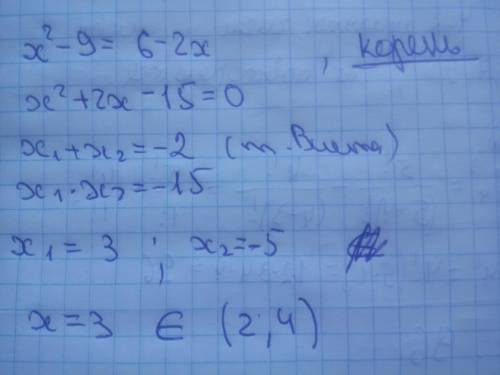 x² - 9 = 6 - 2x , корень
x² + 2x - 15 = 0
x₁ + x₂ = -2 (т. Виета)
x₁ · x₂ = -15
x₁ = 3 ; x₂ = -5
x = 3 ∈ (2; 4)